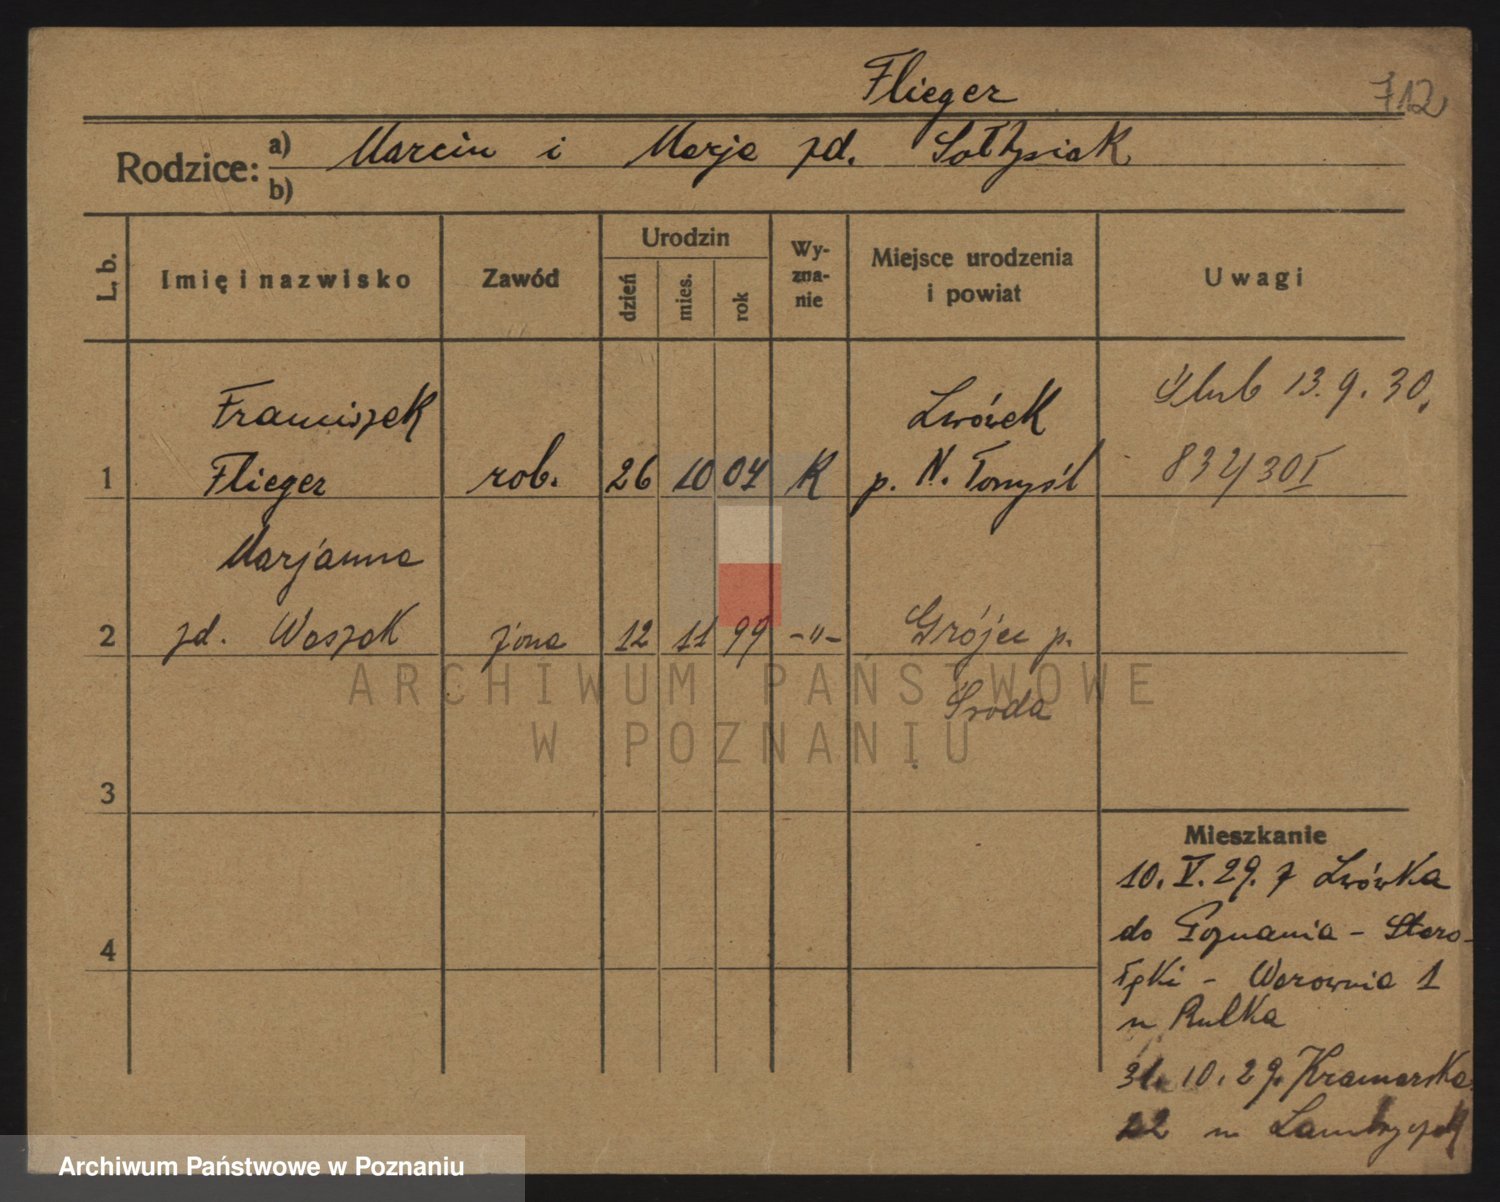 Flieger
712
Rodzice: a) Marcin i Marja zd. Sołtysiak
b)
L. b. Imię i nazwisko Zawód Urodzin Wyznanie Miejsce urodzenia i powiat Uwagi
dzień mies. rok
Franciszek Lwówek Ślub 13.9.30.
1 Flieger rob. 26 10 04 K p. N. Tomyśl 832/30 I
Marjanna
2 zd. Waszak żona 12 11 99 -"- Grójec p.
Środa
ARCHIWUM PAŃSTWOWE
W POZNANIU
3
Mieszkanie
10. V. 29. z Lwówka
do Poznania - Staro-
4
łęki - Warownia 1
u Rulka
31. 10. 29. Kramarska
22 u
Archiwum Państwowe w Poznaniu